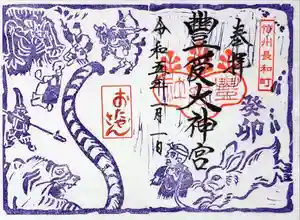 信州長和町
奉拝
癸卯
豊受大神宮
令和五年一月一日
おたやさん